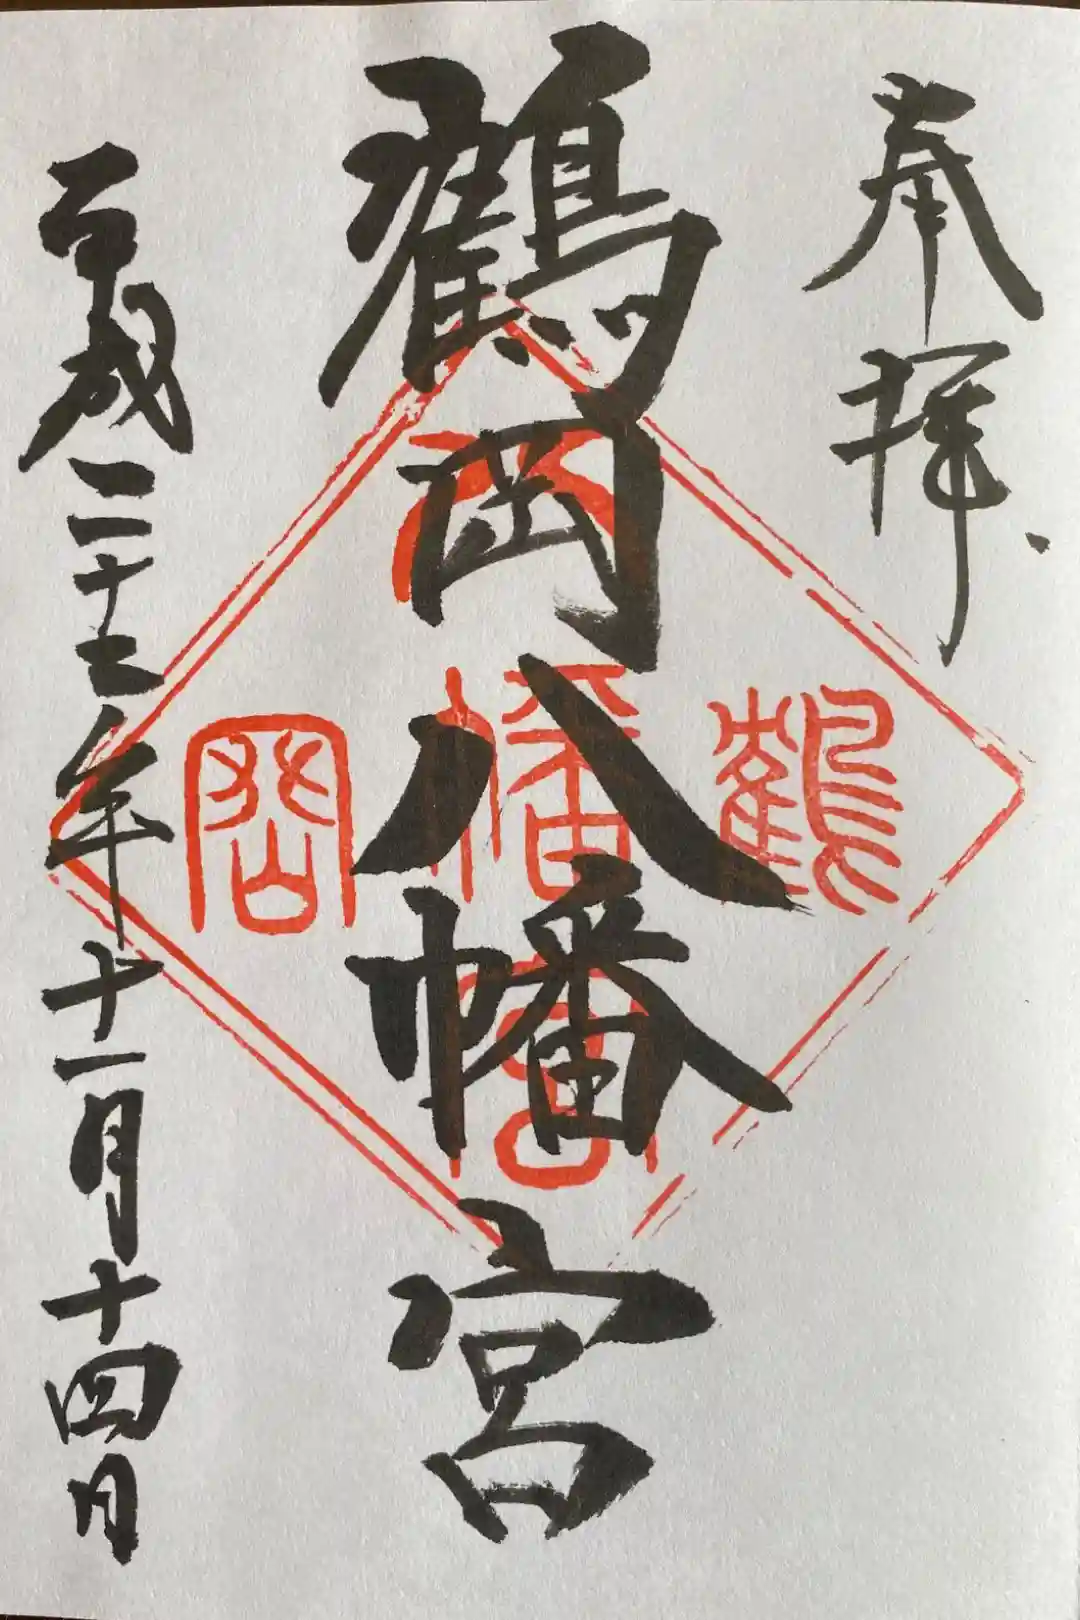 奉拝
鶴岡八幡宮
平成二十五年十一月十四日
鶴岡八幡宮